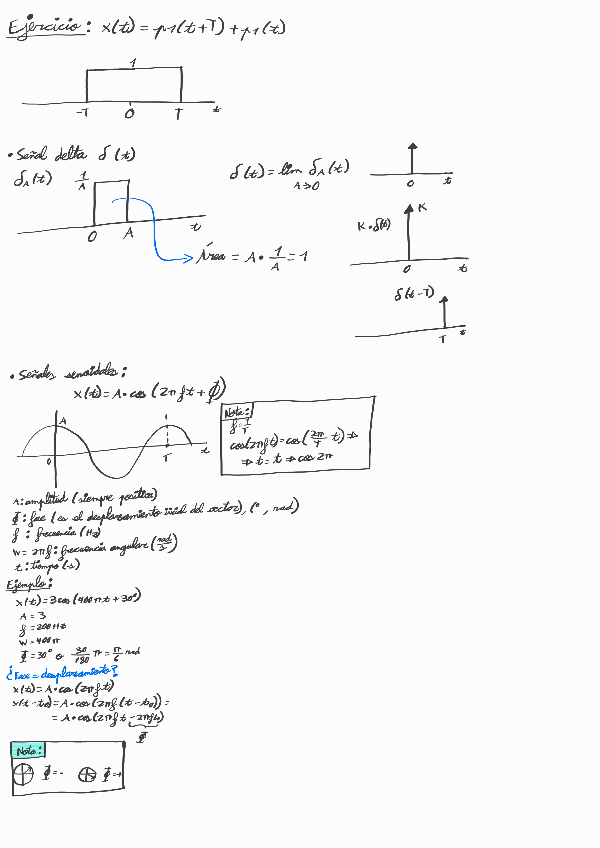 Ejercicio: x(t) = p1(t+T) + p1(t)
1
-T 0 T t
• Señal delta δ(t)
δA(t) 1/A
0 A t
δ(t) = lim δA(t)
A→0
Área = A · 1/A = 1
0 t
K · δ(t) K
0 t
δ(t-T)
T t
• Señales senoidales:
x(t) = A·cos (2πft + ϕ)
A
0 T t
Nota:
f = 1/T
cos(2πft) = cos(2π/T t) ⇒
⇒ t = t ⇒ cos 2π
A: amplitud (siempre positiva)
Φ: fase (es el desplazamiento inicial del vector), (°, rad)
f : frecuencia (Hz)
W = 2πf: frecuencia angular (rad/s)
t: tiempo (s)
Ejemplo:
x(t) = 3 cos (400πt + 30°)
A = 3
f = 200 Hz
W = 400π
Φ = 30° o 30/180 π = π/6 rad
¿Fase = desplazamiento?
x(t) = A·cos (2πft)
x(t-t0) = A·cos (2πf (t-t0)) =
= A·cos (2πft - 2πft0)
Φ
Nota:
Φ = - Φ = +